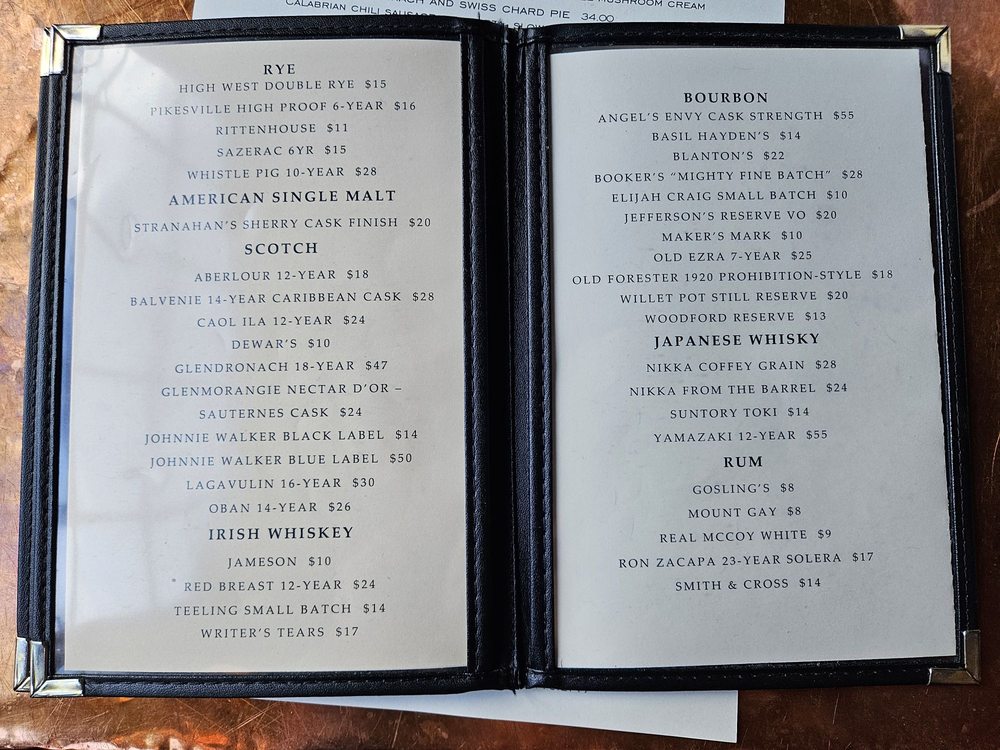 MUSHROOM CREAM
AND SWISS CHARD PIE 34.00
CALABRIAN CHILI SAUSAGE
RYE
HIGH WEST DOUBLE RYE $15
PIKESVILLE HIGH PROOF 6-YEAR $16
RITTENHOUSE $11
SAZERAC 6YR $15
WHISTLE PIG 10-YEAR $28
AMERICAN SINGLE MALT
STRANAHAN'S SHERRY CASK FINISH $20
SCOTCH
ABERLOUR 12-YEAR $18
BALVENIE 14-YEAR CARIBBEAN CASK $28
CAOL ILA 12-YEAR $24
DEWAR'S $10
GLENDRONACH 18-YEAR $47
GLENMORANGIE NECTAR D'OR –
SAUTERNES CASK $24
JOHNNIE WALKER BLACK LABEL $14
JOHNNIE WALKER BLUE LABEL $50
LAGAVULIN 16-YEAR $30
OBAN 14-YEAR $26
IRISH WHISKEY
JAMESON $10
RED BREAST 12-YEAR $24
TEELING SMALL BATCH $14
WRITER'S TEARS $17
BOURBON
ANGEL'S ENVY CASK STRENGTH $55
BASIL HAYDEN'S $14
BLANTON'S $22
BOOKER'S "MIGHTY FINE BATCH" $28
ELIJAH CRAIG SMALL BATCH $10
JEFFERSON'S RESERVE VO $20
MAKER'S MARK $10
OLD EZRA 7-YEAR $25
OLD FORESTER 1920 PROHIBITION-STYLE $18
WILLET POT STILL RESERVE $20
WOODFORD RESERVE $13
JAPANESE WHISKY
NIKKA COFFEY GRAIN $28
NIKKA FROM THE BARREL $24
SUNTORY TOKI $14
YAMAZAKI 12-YEAR $55
RUM
GOSLING'S $8
MOUNT GAY $8
REAL MCCOY WHITE $9
RON ZACAPA 23-YEAR SOLERA $17
SMITH & CROSS $14